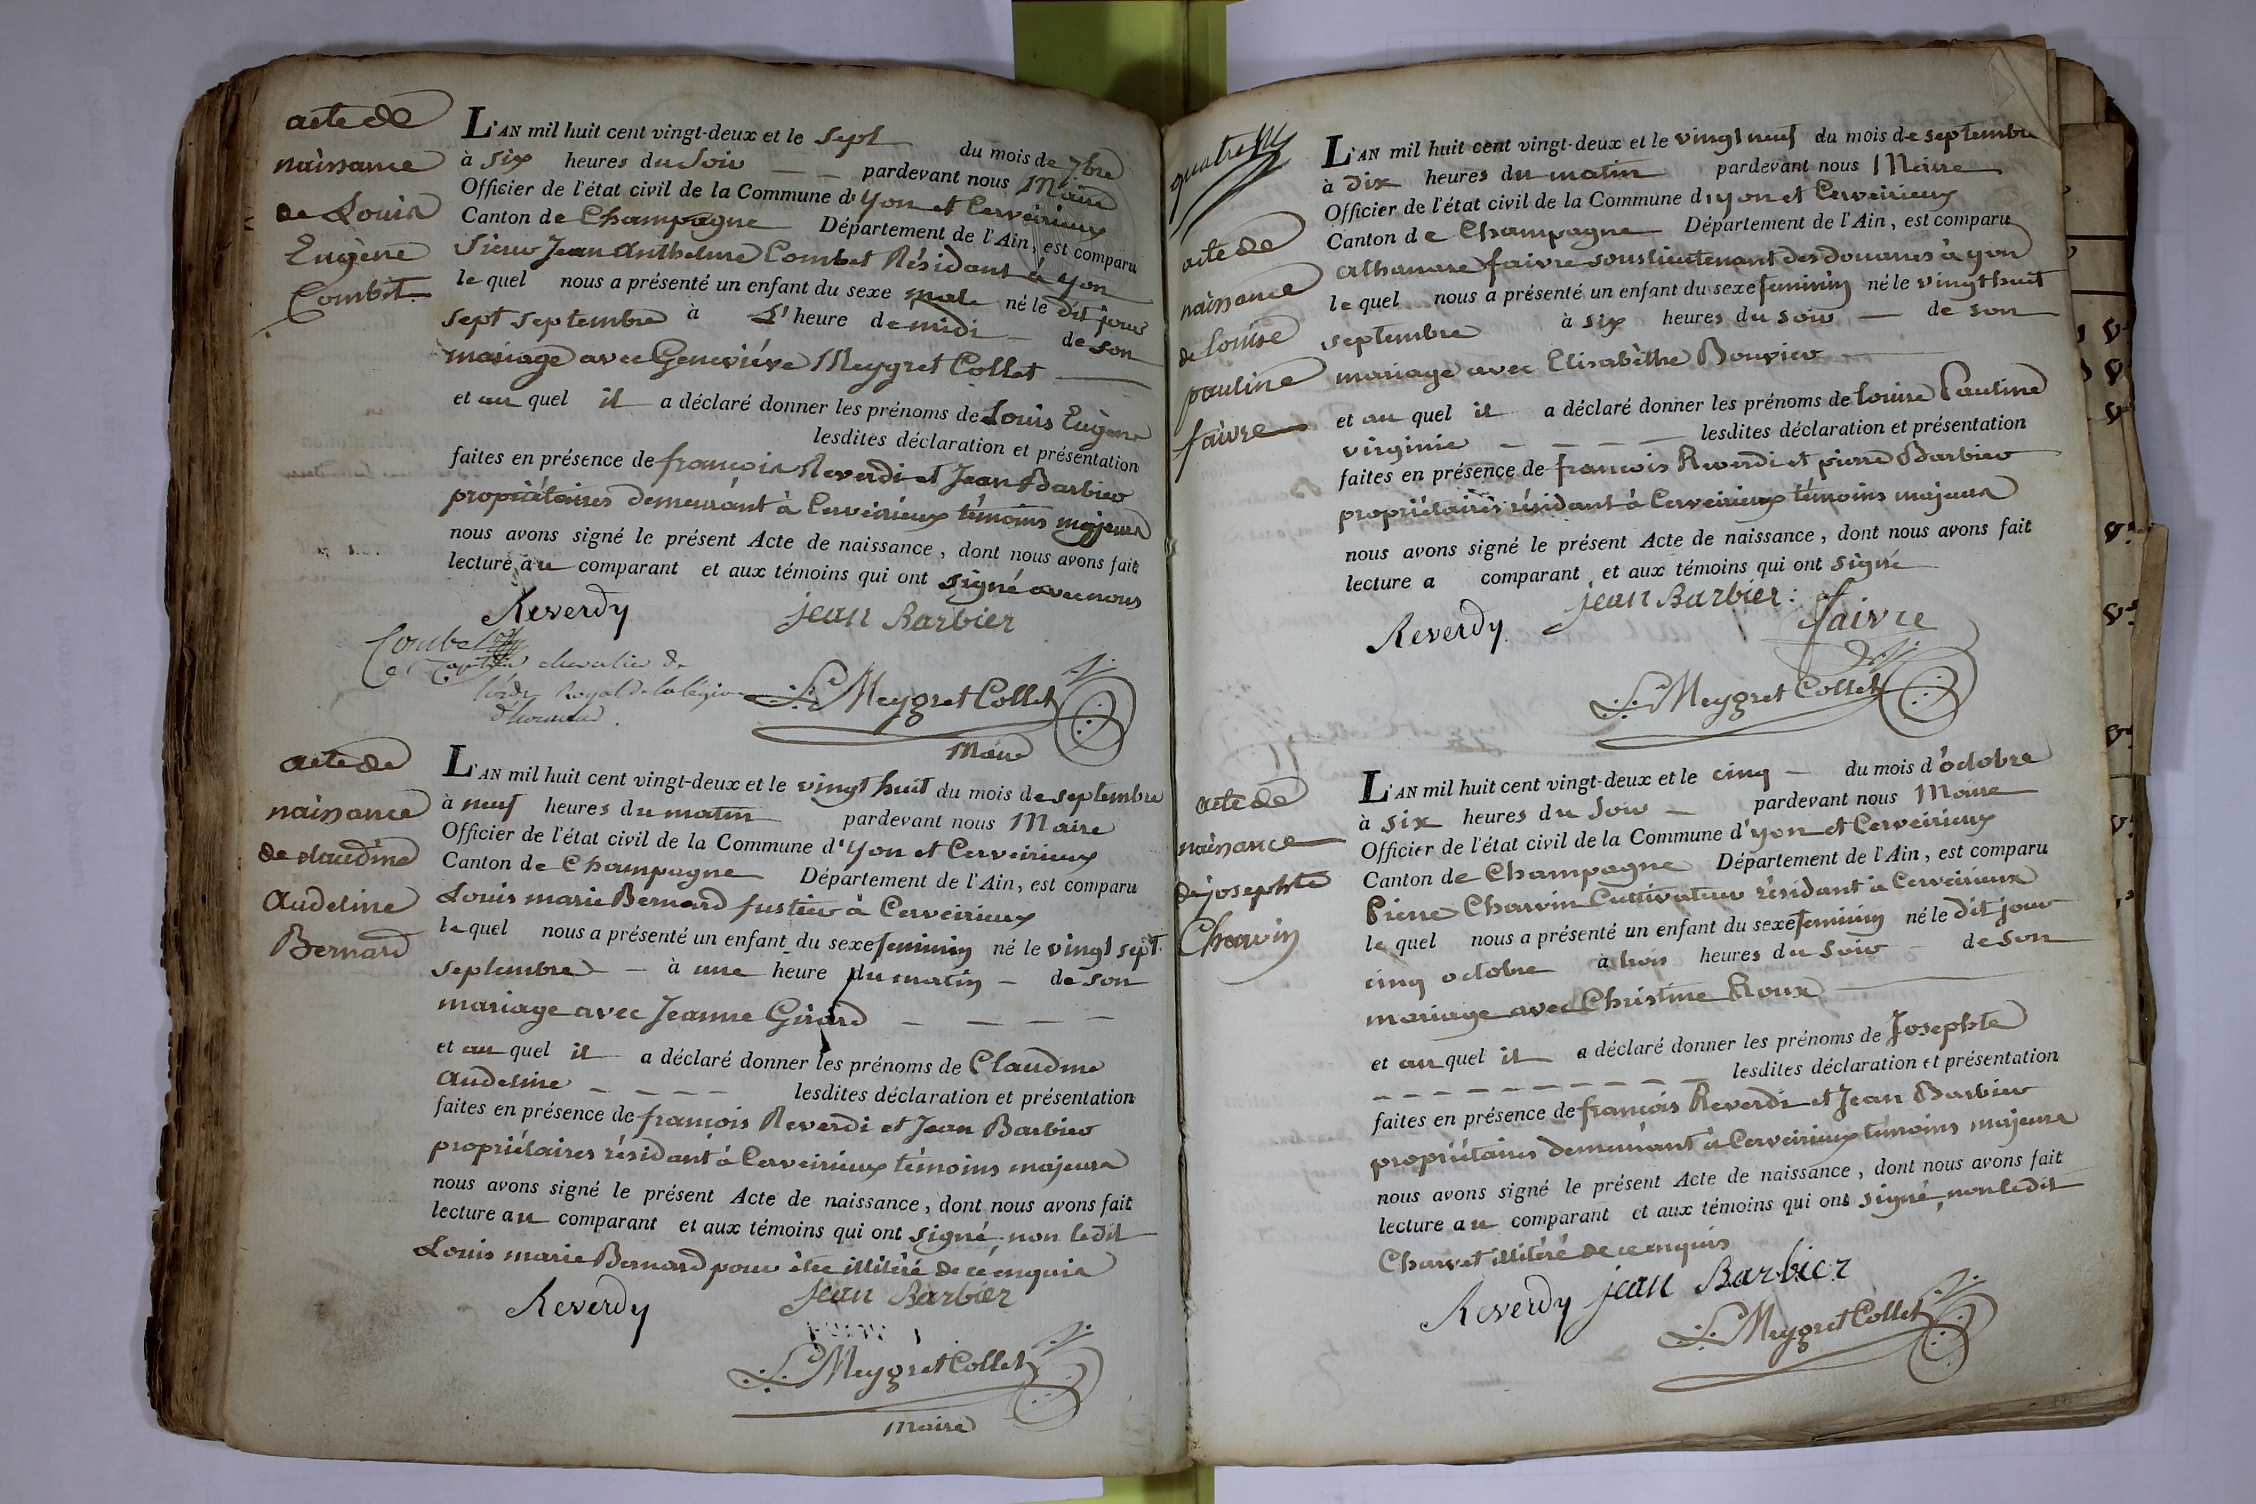 acte de
naissance
de Louis
Eugène
Combet
L'AN mil huit cent vingt-deux et le sept du mois de 7bre
à six heures du soir pardevant nous Maire
Officier de l'état civil de la Commune d'yon et Cerveirieux
Canton de Champagne Département de l'Ain, est comparu
Sieur Jean Anthelme Combet Résidant à yon
le quel nous a présenté un enfant du sexe male né le dit jour
sept septembre à L'heure de midi de son
mariage avec Geneviéve Meygret Collet
et au quel il a déclaré donner les prénoms de Louis Eugène
lesdites déclaration et présentation
faites en présence de françois Reverdi et Jean Barbier
propriétaires demeurant à Cerveirieux témoins majeurs
nous avons signé le présent Acte de naissance, dont nous avons fait
lecture au comparant et aux témoins qui ont signé avec nous
Reverdy jean Barbier
Combet
chevalier de
l'ordre Royal de la légion
d'honneur.
L. Meygret Collet
Maire
acte de
naissance
de claudine
Audeline
Bernard
L'AN mil huit cent vingt-deux et le vingt huit du mois de septembre
à neuf heures du matin pardevant nous Maire
Officier de l'état civil de la Commune d'yon et Cerveirieux
Canton de Champagne Département de l'Ain, est comparu
Louis marie Bernard fustier à Cerveirieux
le quel nous a présenté un enfant du sexe feminin né le vingt sept
septembre à une heure du matin de son
mariage avec Jeanne Girard
et au quel il a déclaré donner les prénoms de Claudine
Audeline lesdites déclaration et présentation
faites en présence de françois Reverdi et Jean Barbier
propriétaires résidant à Cerveirieux témoins majeurs
nous avons signé le présent Acte de naissance, dont nous avons fait
lecture au comparant et aux témoins qui ont signé non ledit
Louis marie Bernard pour être illitéré de ce enquis
Reverdy jean Barbier
L. Meygret Collet
Maire
acte de
naissance
de louise
pauline
faivre
L'AN mil huit cent vingt-deux et le vingt neuf du mois de septembre
à Dix heures du matin pardevant nous Maire
Officier de l'état civil de la Commune d'yon et Cerveirieux
Canton de Champagne Département de l'Ain, est comparu
Athanase faivre sous lieutenant des douanes à yon
le quel nous a présenté un enfant du sexe feminin né le vingt huit
septembre à six heures du soir de son
mariage avec Elisabèthe Bouvier
et au quel il a déclaré donner les prénoms de louise Pauline
virginie lesdites déclaration et présentation
faites en présence de françois Reverdi et pierre Barbier
propriétaires résidant à Cerveirieux témoins majeurs
nous avons signé le présent Acte de naissance, dont nous avons fait
lecture a comparant et aux témoins qui ont signé
Reverdy jean Barbier: faivre
L. Meygret Collet
acte de
naissance
de josephte
Charvin
L'AN mil huit cent vingt-deux et le cinq du mois d'octobre
à six heures du soir pardevant nous Maire
Officier de l'état civil de la Commune d'yon et Cerveirieux
Canton de Champagne Département de l'Ain, est comparu
Pierre Charvin Cultivateur résidant à Cerveirieux
le quel nous a présenté un enfant du sexe feminin né le dit jour
cinq octobre à trois heures du soir de son
mariage avec Christine Roux
et au quel il a déclaré donner les prénoms de Josephte
lesdites déclaration et présentation
faites en présence de françois Reverdi et Jean Barbier
propriétaires demeurant à Cerveirieux témoins majeurs
nous avons signé le présent Acte de naissance, dont nous avons fait
lecture au comparant et aux témoins qui ont signé, non ledit
Charvet illitéré de ce enquis
Reverdy jean Barbier
L. Meygret Collet